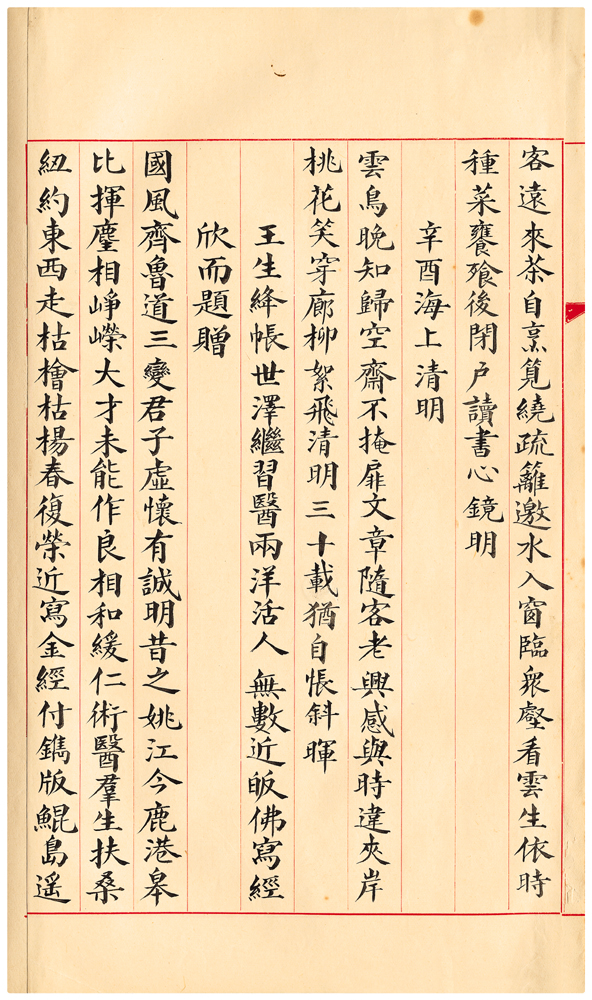 客遠來茶自烹筧繞疏籬邀水入窗臨衆壑看雲生依時
種菜饔飱後閉戶讀書心鏡明
辛酉海上清明
雲鳥晚知歸空齋不掩扉文章隨客老興感與時違夾岸
桃花笑穿廊柳絮飛清明三十載猶自悵斜暉
王生絳帳世澤繼習醫兩洋活人無數近皈佛寫經
欣而題贈
國風齊魯道三變君子虛懷有誠明昔之姚江今鹿港皋
比揮麈相崢嶸大才未能作良相和緩仁術醫羣生扶桑
紐約東西走枯檜枯楊春復榮近寫金經付鐫版鯤島遥